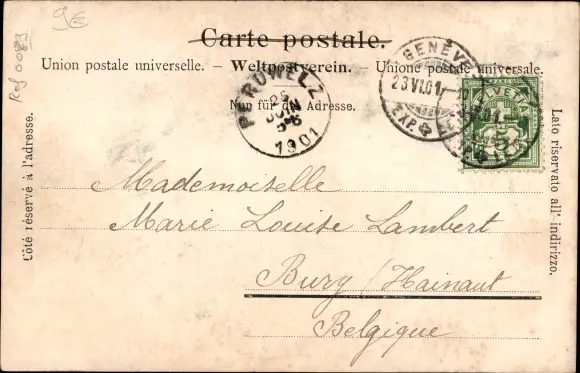 9€
Carte postale.
Union postale universelle. – Weltpostverein. – Unione postale universale.
Nur für die Adresse.
Côté réservé à l'adresse.
Lato riservato all' indirizzo.
PÉRUWELZ
25
JUIN
5-6
1901
GENÈVE
23 VI.01
EXP.
HELVETIA
5
Mademoiselle
Marie Louise Lambert
Bury / Hainaut
Belgique